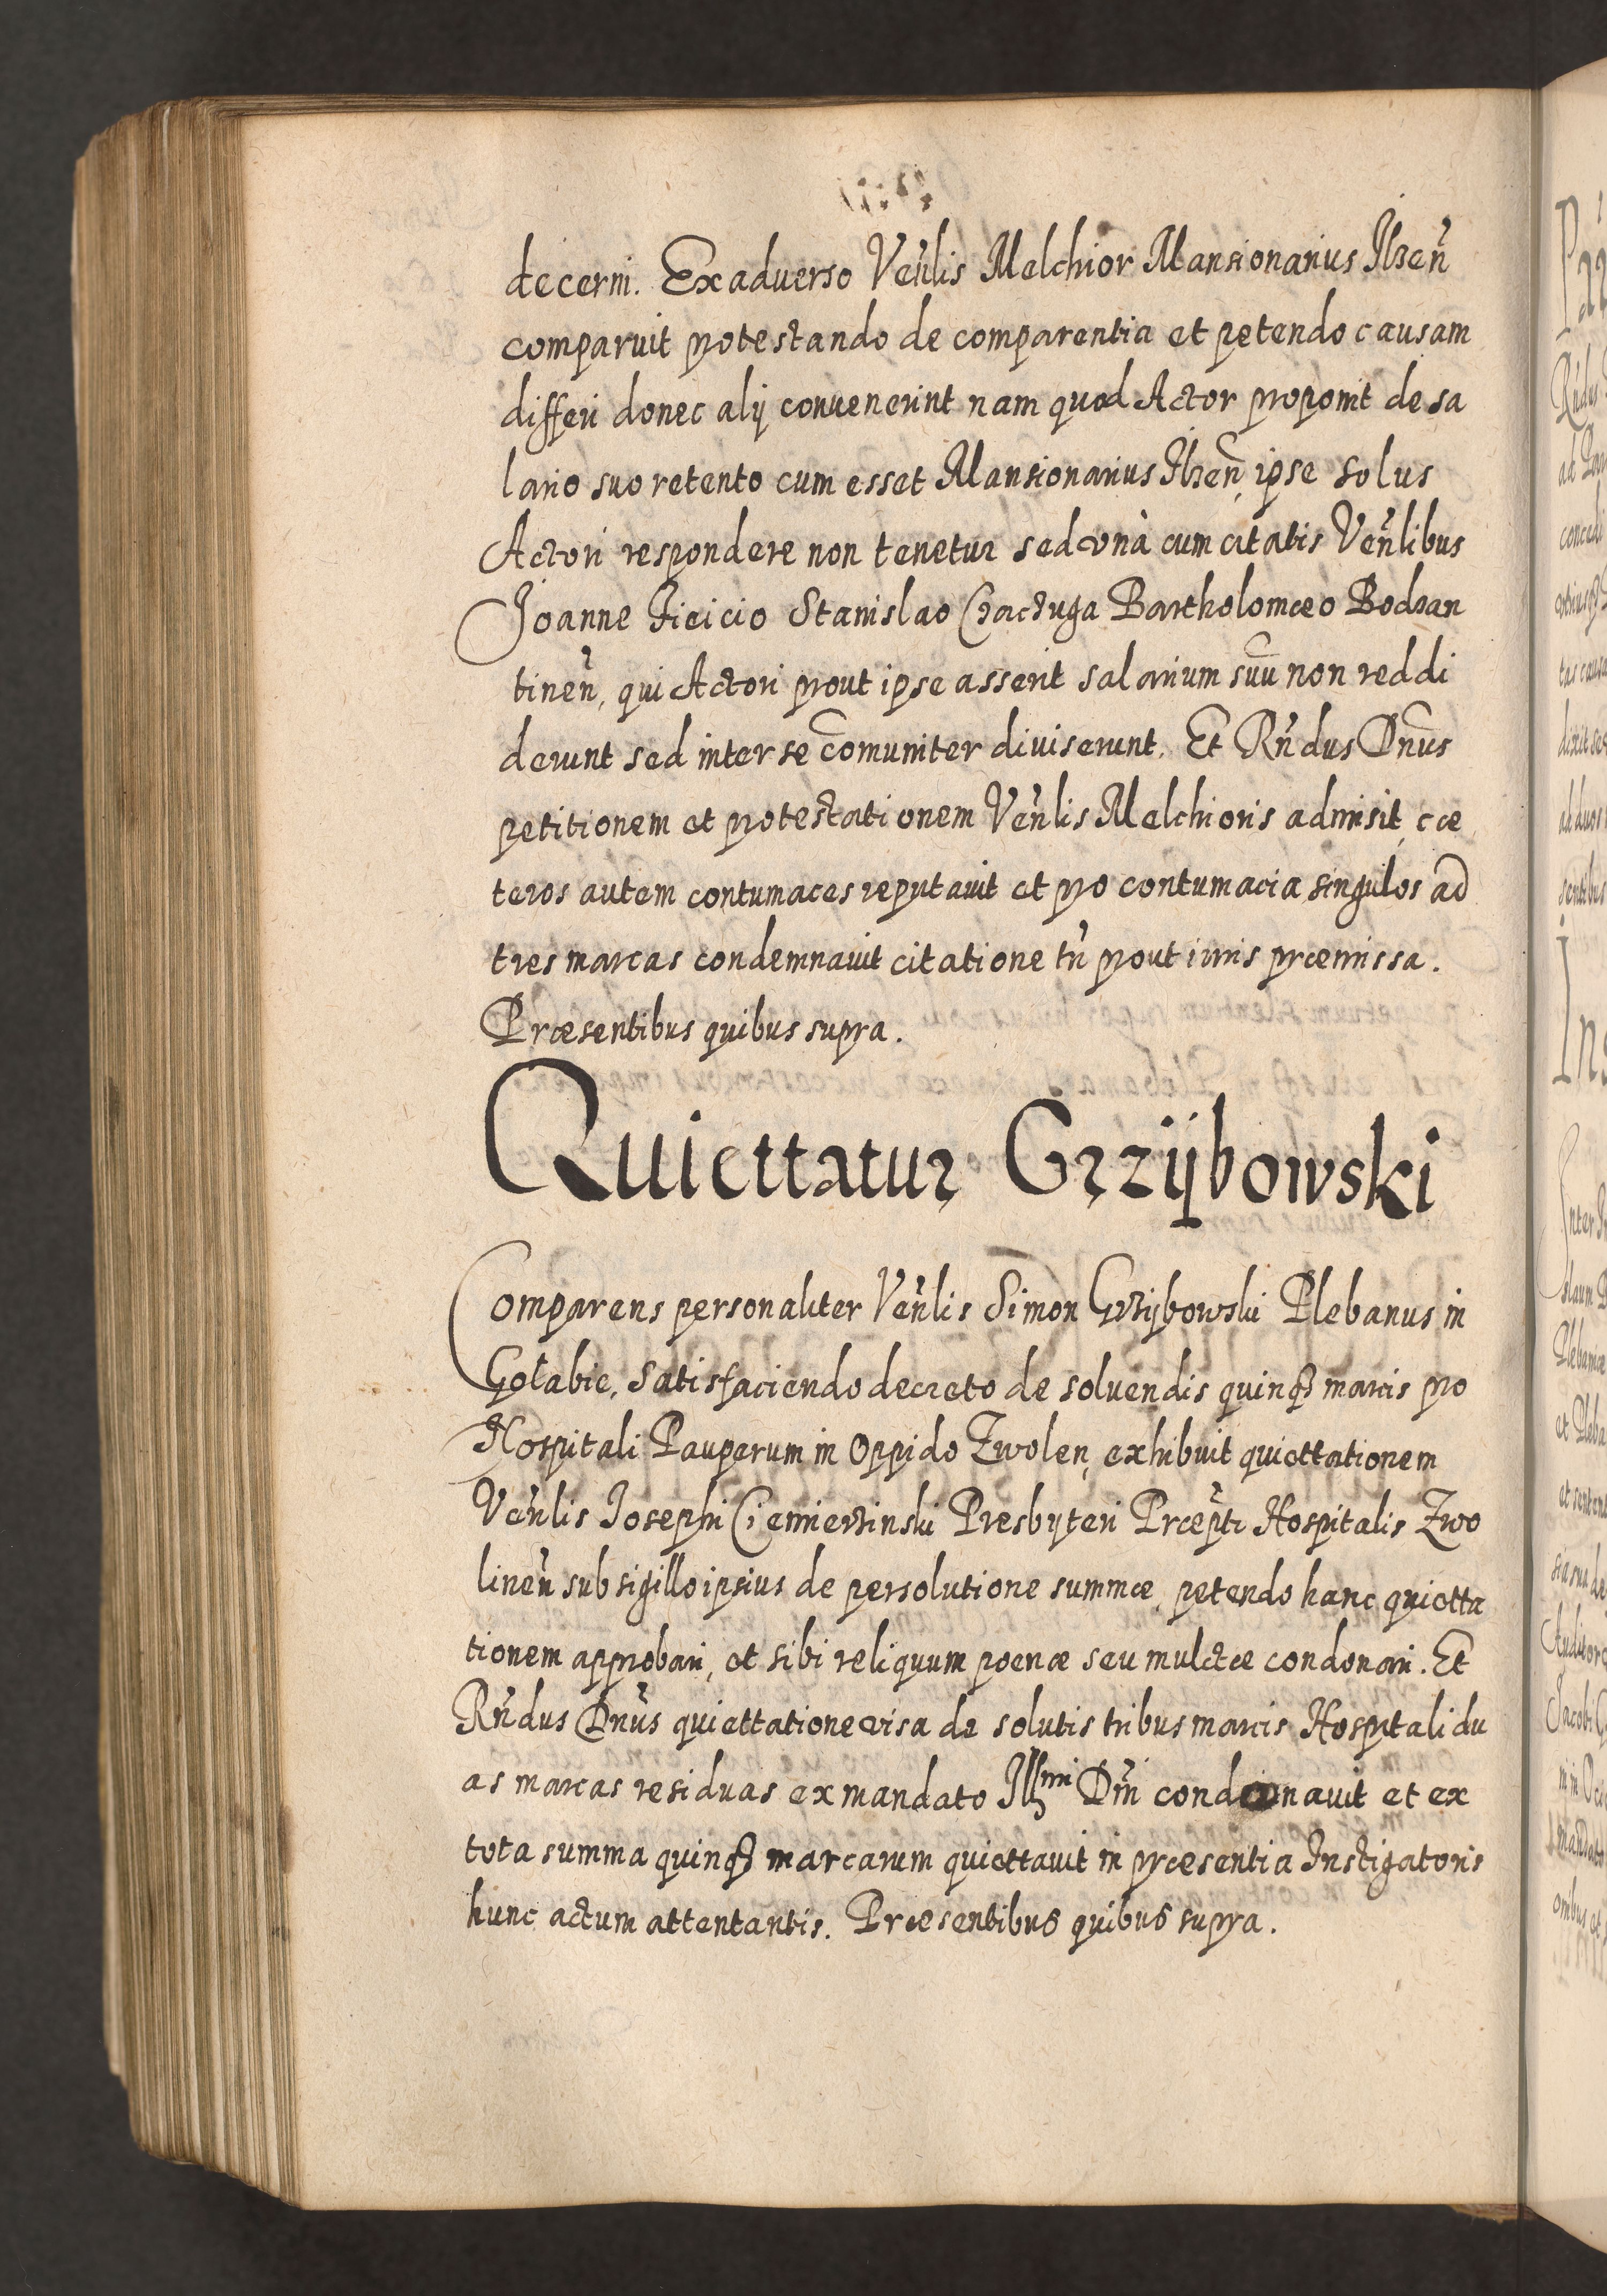 decerni. Ex aduerso Ven̄lis Melchior Mansionarius Ilzen̄
comparuit protestando de comparentia et petendo causam
differi donec alij conuenerint nam quod Actor proponit de sa
lario suo retento cum esset Mansionarius Ilzen̄, ipse solus
Actori respondere non tenetur sed vnà cum citatis Ven̄libus
Joanne Ficicio Stanislao Czactuga Bartholomæo Bodzan
tinen̄, qui Actori prout ipse asserit salarium suū non reddi
derunt sed inter se com̄uniter diuiserunt. Et Rn̄dus Dn̄us
petitionem et protestationem Ven̄lis Melchioris admisit, cæ
teros autem contumaces reputauit et pro contumacia singulos ad
tres marcas condemnauit citatione tn̄ prout iuris præmissa.
Præsentibus quibus supra.
Quiettatur Grzÿbowski
Comparens personaliter Ven̄lis Simon Grzÿbowski Plebanus in
Gołabie, Satisfaciendo decreto de soluendis quinqȝ marcis pro
Hospitali Pauperum in Oppido Zwolen, exhibuit quiettationem
Ven̄lis Josephi Ciemierzinski Presbyteri Præp̄ti Hospitalis Zwo
linen̄ sub sigillo ipsius de persolutione summæ, petendo hanc quietta
tionem approbari, et sibi reliquum poenæ seu mulctæ condonari. Et
Rn̄dus Dn̄us quiettatione visa de solutis tribus marcis Hospitali du
as marcas residuas ex mandato Illmi Dn̄i condonauit et ex
tota summa quinqȝ marcarum quiettauit in præsentia Instigatoris
hunc actum attentantis. Præsentibus quibus supra.